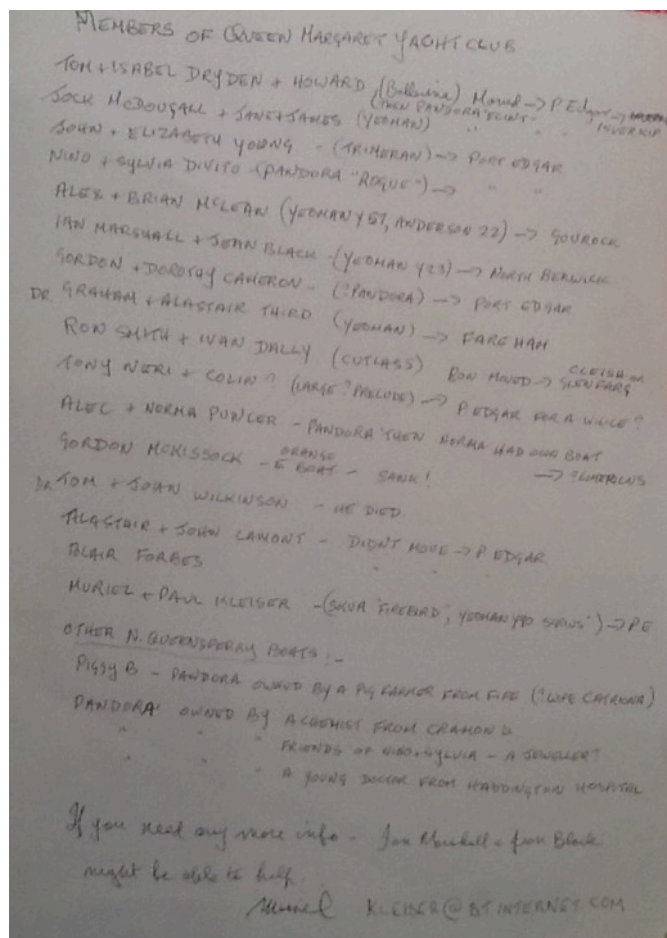 MEMBERS OF QUEEN MARGARET YACHT CLUB
TOM + ISABEL DRYDEN + HOWARD, (Ballerina) Moved -> P. Edgar ->
(THEN PANDORA "FLINT" " " INVERKIP
JOCK McDOUGALL + JANE + JAMES (YEOMAN) " "
JOHN + ELIZABETH YOUNG - (TRIMERAN) -> PORT EDGAR
NINO + SYLVIA DIVITO - (PANDORA "ROGUE") -> " "
ALEX + BRIAN McLEAN (YEOMAN Y57, ANDERSON 22) -> GOUROCK
IAN MARSHALL + JEAN BLACK - (YEOMAN Y23) -> NORTH BERWICK
GORDON + DOROTHY CAMERON - (?PANDORA) -> PORT EDGAR
DR GRAHAM + ALASTAIR THIRD (YEOMAN) -> FAREHAM
RON SMITH + IVAN DALLY (CUTLASS) RON MOVED -> CLEISH or GLENFARG
TONY NERI + COLIN? (LARGE ?PRELUDE) -> P. EDGAR FOR A WHILE?
ALEC + NORMA PUNLER - PANDORA THEN NORMA HAD OWN BOAT
GORDON McKISSOCK - ORANGE E BOAT - SANK! ->
DR TOM + JOAN WILKINSON - HE DIED
ALASTAIR + JOHN LAMONT - DIDN'T MOVE -> P. EDGAR
BLAIR FORBES " " "
MURIEL + PAUL KLEISER - (SKUA "FIREBIRD", YEOMAN Y90 "SIRIUS") -> PE
OTHER N. QUEENSFERRY BOATS:-
PIGGY B - PANDORA OWNED BY A PIG FARMER FROM FIFE (?WIFE CATRIONA)
PANDORA OWNED BY A CHEMIST FROM CRAMOND
" " " FRIENDS OF NINO + SYLVIA - A JEWELLER?
" " " A YOUNG DOCTOR FROM HADDINGTON HOSPITAL
If you need any more info - Ian Marshall + Jean Black
might be able to help.
Muriel KLEISER@BTINTERNET.COM